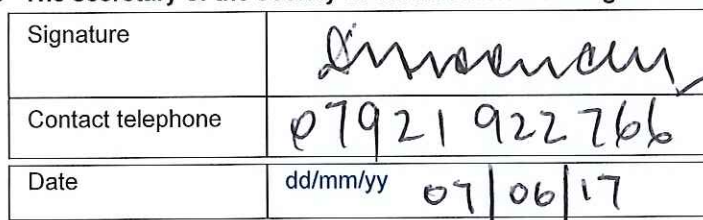 Signature
Contact telephone 07921 922766
Date dd/mm/yy 07/06/17